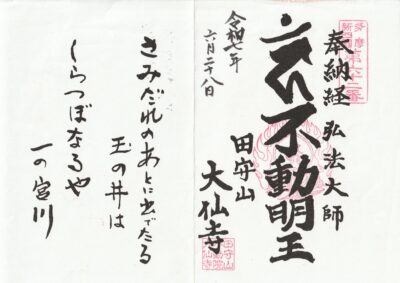 奉納経 弘法大師
不動明王
田守山
大仙寺
令和七年
六月二十八日
さみだれのあとに出でたる
玉の井は
しらつぼなるや
一の宮川